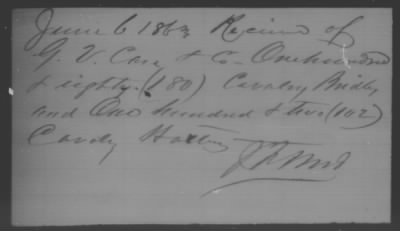 June 6 1863 Received of
G. V. Case & Co. One hundred
& eighty (180) Cavalry Bridles
and One hundred & two (102)
Cavalry